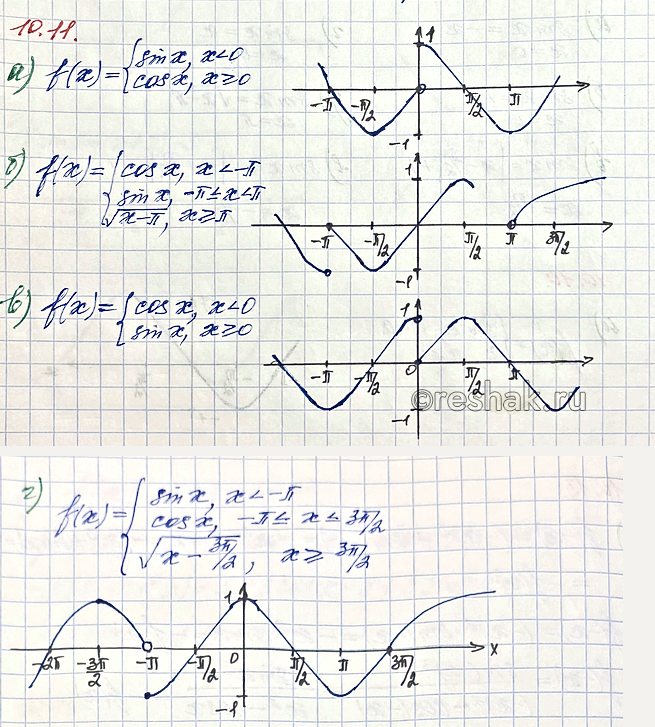 10.11.
а) f(x) = { sin x, x<0
cos x, x≥0
1
-π -π/2 π/2 π
-1
б) f(x) = { cos x, x<-π
sin x, -π≤x<π
√x-π, x≥π
1
-π -π/2 π/2 π 3π/2
-1
в) f(x) = { cos x, x<0
sin x, x≥0
1
-π -π/2 0 π/2 π
-1
©reshak.ru
г) f(x) = { sin x, x<-π
cos x, -π≤ x ≤ 3π/2
√x - 3π/2, x ≥ 3π/2
1
-2π -3π/2 -π -π/2 0 π/2 π 3π/2 x
-1